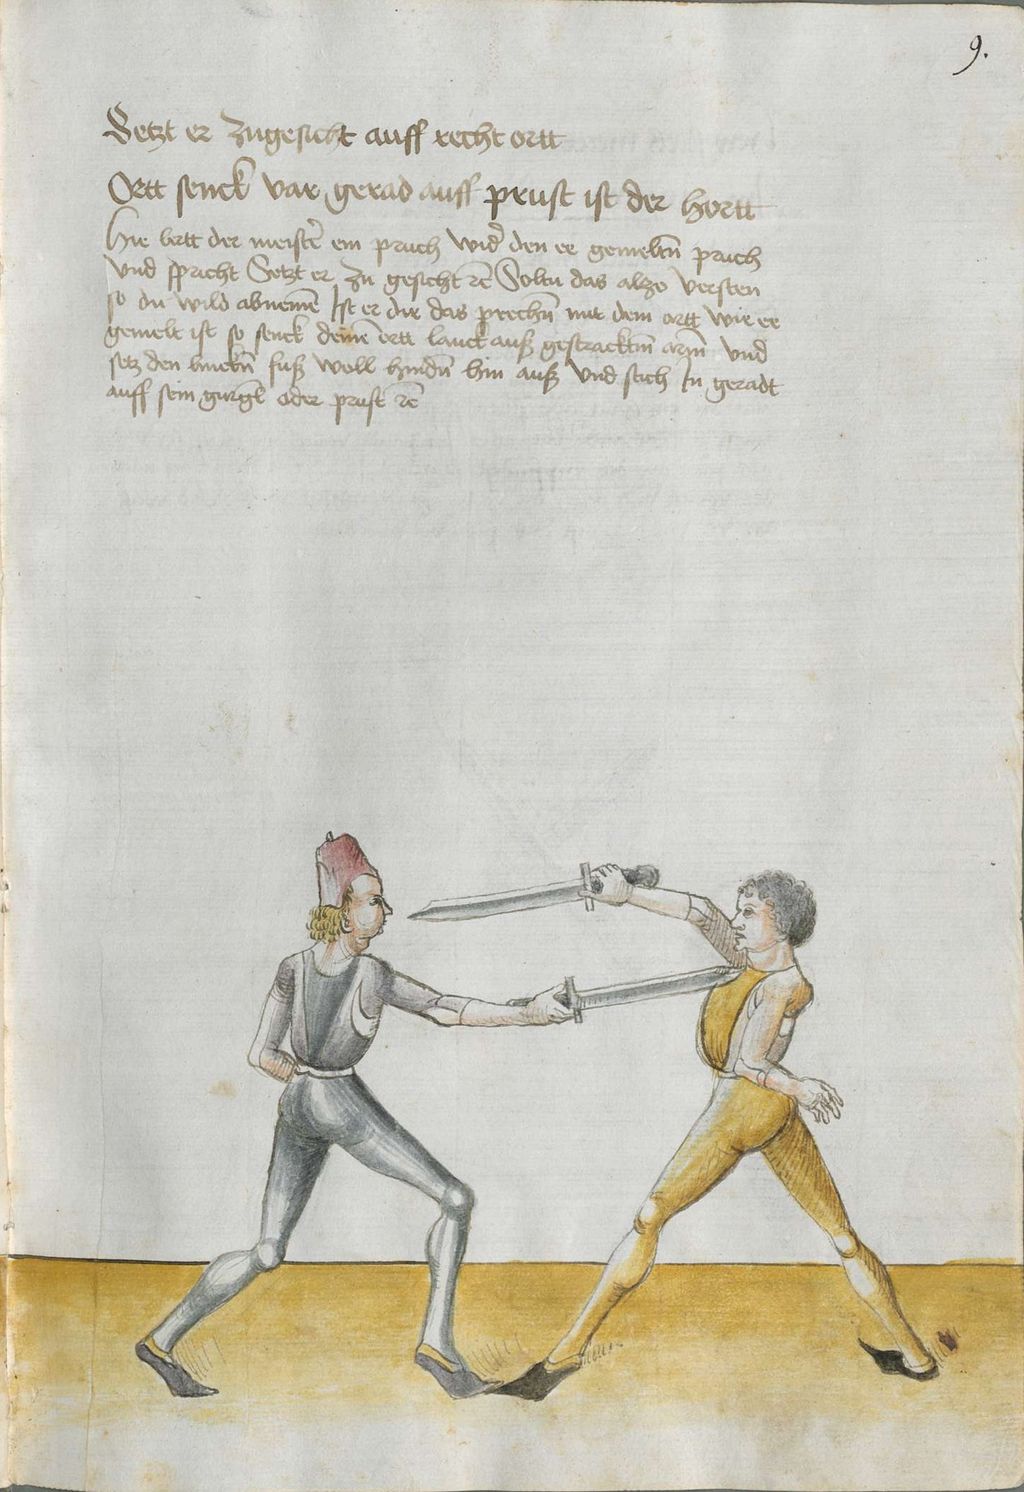 9.
Setzt er zugesicht auff recht ortt
Ortt senck var gerad auff prust ist der hortt
Hie lertt der meist̄ ein pruch wid̄ den ee gemeltn̄ pruch
vnd spricht Setzt er zu gesicht rc̄ Soltu das also versten
so du wild abnemē Ist er dir das prechn̄ mit dem ortt wie ee
gemelt ist so senck deinē ortt lanck auß gestracktm̄ arm̄ vnd
setz den linckn̄ fuß woll hindn̄ hin auß vnd stich In geradt
auff sein gurgl̄ oder prust rc̄